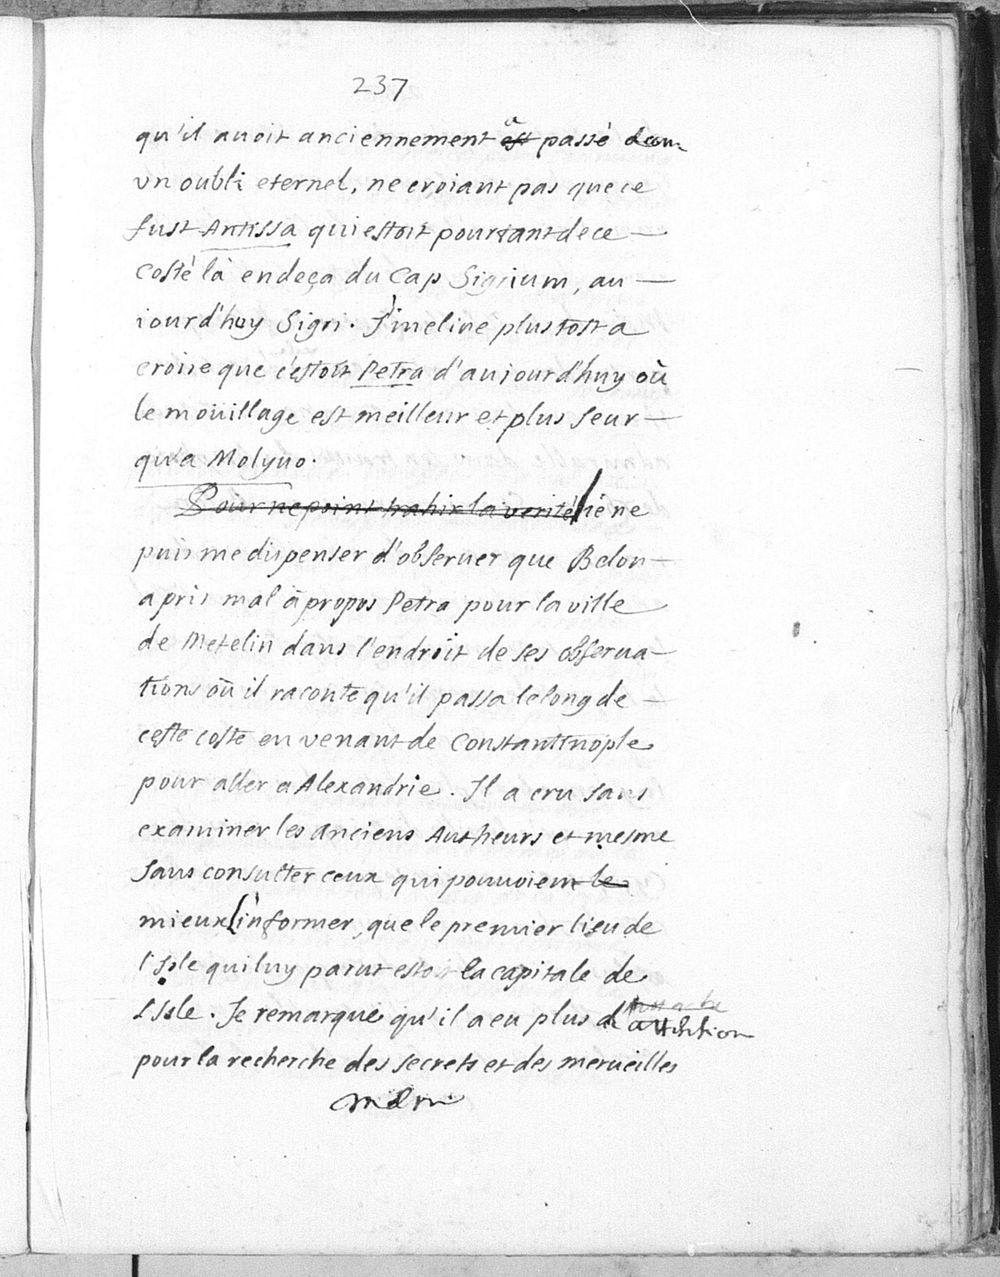 237
qu'il auoit anciennement a est passé dans
vn oubli eternel, ne croiant pas que ce
fust Antissa qui estoit pourtant de ce
costé là en deça du Cap Sigrium, au
iourd'huy Sigri. J'incline plustost a
croire que c'estoit Petra d'aujourd'huy où
le moüillage est meilleur et plus seur
qu'a Molyuo.
Pour ne point trahir la verité ie ne
puis me dispenser d'obseruer que Belon
a pris mal à propos Petra pour la ville
de Metelin dans l'endroit de ses obserua
tions où il raconte qu'il passa le long de
ceste coste en venant de Constantinople
pour aller a Alexandrie. Il a cru sans
examiner les anciens Autheurs et mesme
sans consulter ceux qui pouuoient le
mieux l'informer, que le premier lieu de
l'Isle qui luy parut estoit la capitale de
L'Isle. Je remarque qu'il a eu plus d'attention
pour la recherche des secrets et des merueilles